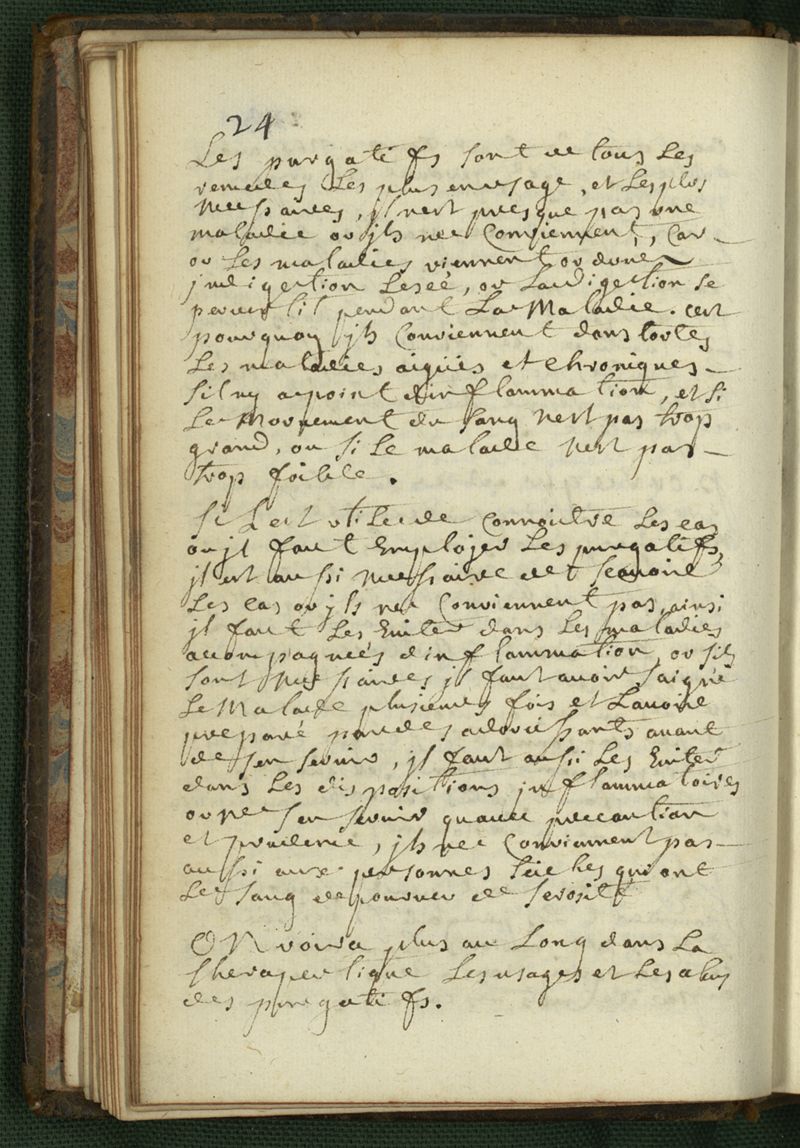 24
Les purgatifs sont de tous Les
remedes Les plus en usage, et Les plus
necessaires, jl nest presque pas une
maladie ou jls ne Conviennent, Car
ou Les maladies viennent ou dune
jndigestion Lesée, ou La digestion se
pervertit pendant La Maladie. cest
pourquoy jls Conviennent dans toutes
Les maladies aiguës et Chroniques
sil ny a point dinflammation, et si
Le Mouvement du sang nest pas trop
grand, ou si Le malade nest pas
trop foible.
Sil est utile de Connoitre Les cas
ou jl faut Employer Les purgatifs,
jl est aussi necessaire de scavoir
Les cas ou jls ne Conviennent pas, ainsi
jl faut Les Eviter dans Les maladies
accompagnées dinflammation, ou sils
sont necessaires jl faut avoir saigné
Le Malade plusieurs fois et Lavoir
preparé par des adoucissants avant
de sen servir, jl faut aussi Les Eviter
dans Les dispositions jnflammatoires
ou ne sen servir quavec precaution
et prudence, jls ne Conviennent pas
aussi aux personnes seiches qui ont
Le sang depourveu de serosité
ON voira plus au Long dans La
therapeutique Les usages et Les abus
des purgatifs.